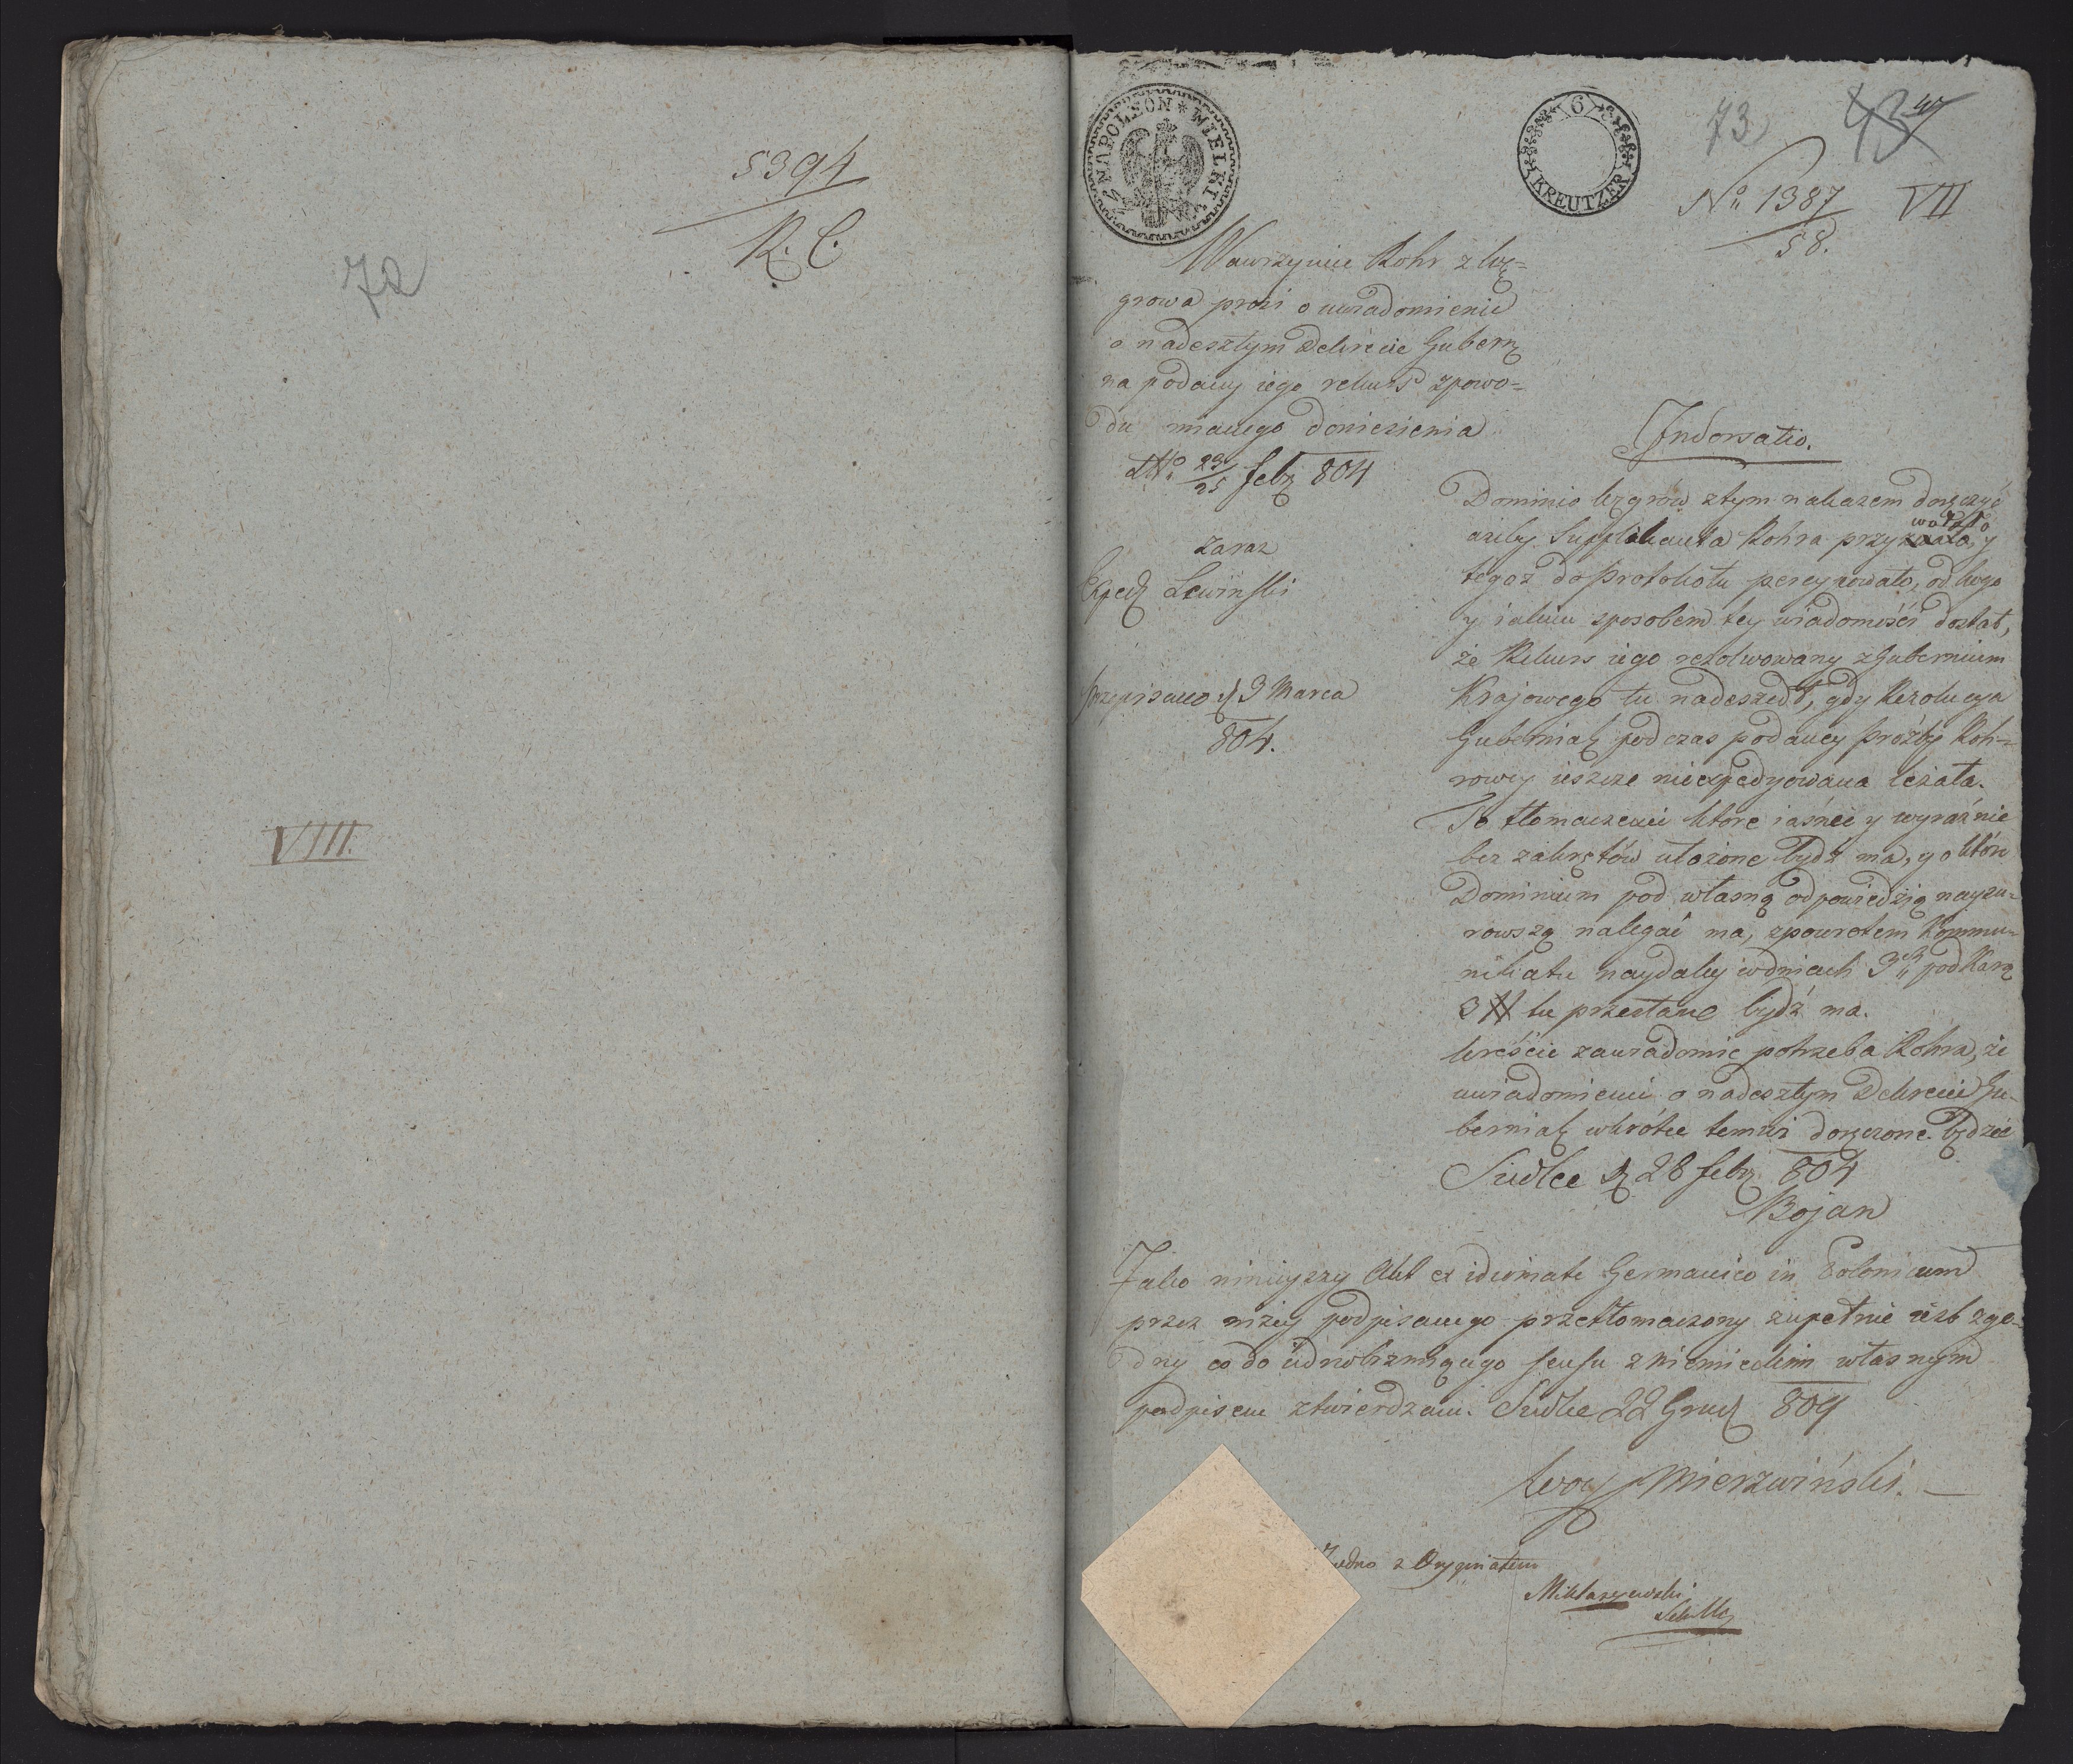 5394
R. C.
72
VIII.
NAPOLEON * WIELKI
6
KREUTZER
73
No 1387 VII
58.
Wawrzyniec Rohr z Wę=
growa prosi o uwiadomienie
o nadeszłym Dekrecie Gubern
na podany iego rekurs zpowo=
du mianego doniesienia
No 23/25 febr 804
Zaraz
Exped Lewinski
przepisano d 3 Marca
804.
Indorsatio.
Dominio Węgrów ztym nakazem doręczyć
ażeby Supplikanta Rohra przyzwało, y
tegoż do Protokołu percypowało, od kogo
y iakim sposobem tey wiadomości dostał,
że Rekurs iego rezolwowany z Gubernium
Krajowego tu nadeszedł, gdy Rezolucya
Gubernial podczas podaney prośby Roh=
rowey ieszcze nieexpedyowana leżała.
To tłomaczenie które iaśnie y wyraźnie
bez zakrętów ułożone bydź ma, y o które
Dominium pod własną odpowiedzią naysu=
rowszą nalegać ma, zpowrotem Kommu=
nikatu naydaley w dniach 3ch pod Karą
3 # tu przesłane bydź ma.
Wreście zawiadomić potrzeba Rohra, że
uwiadomienie o nadeszłym Dekrecie Gu=
bernial wkrótce temuż doręczone będzie
Siedlce d 28 febr 804
Bojan
Jako ninieyszy Akt ex idiomate Germanico in Polonicum
przez niżey podpisanego przetłomaczony zupełnie iest zgo=
dny co do iednobrzmiącego sensu z niemieckim własnym
podpisem ztwierdzam. Siedlce 22 Grud 809
Mierzwiński.
Zgodno z Oryginałem
Miklaszewski